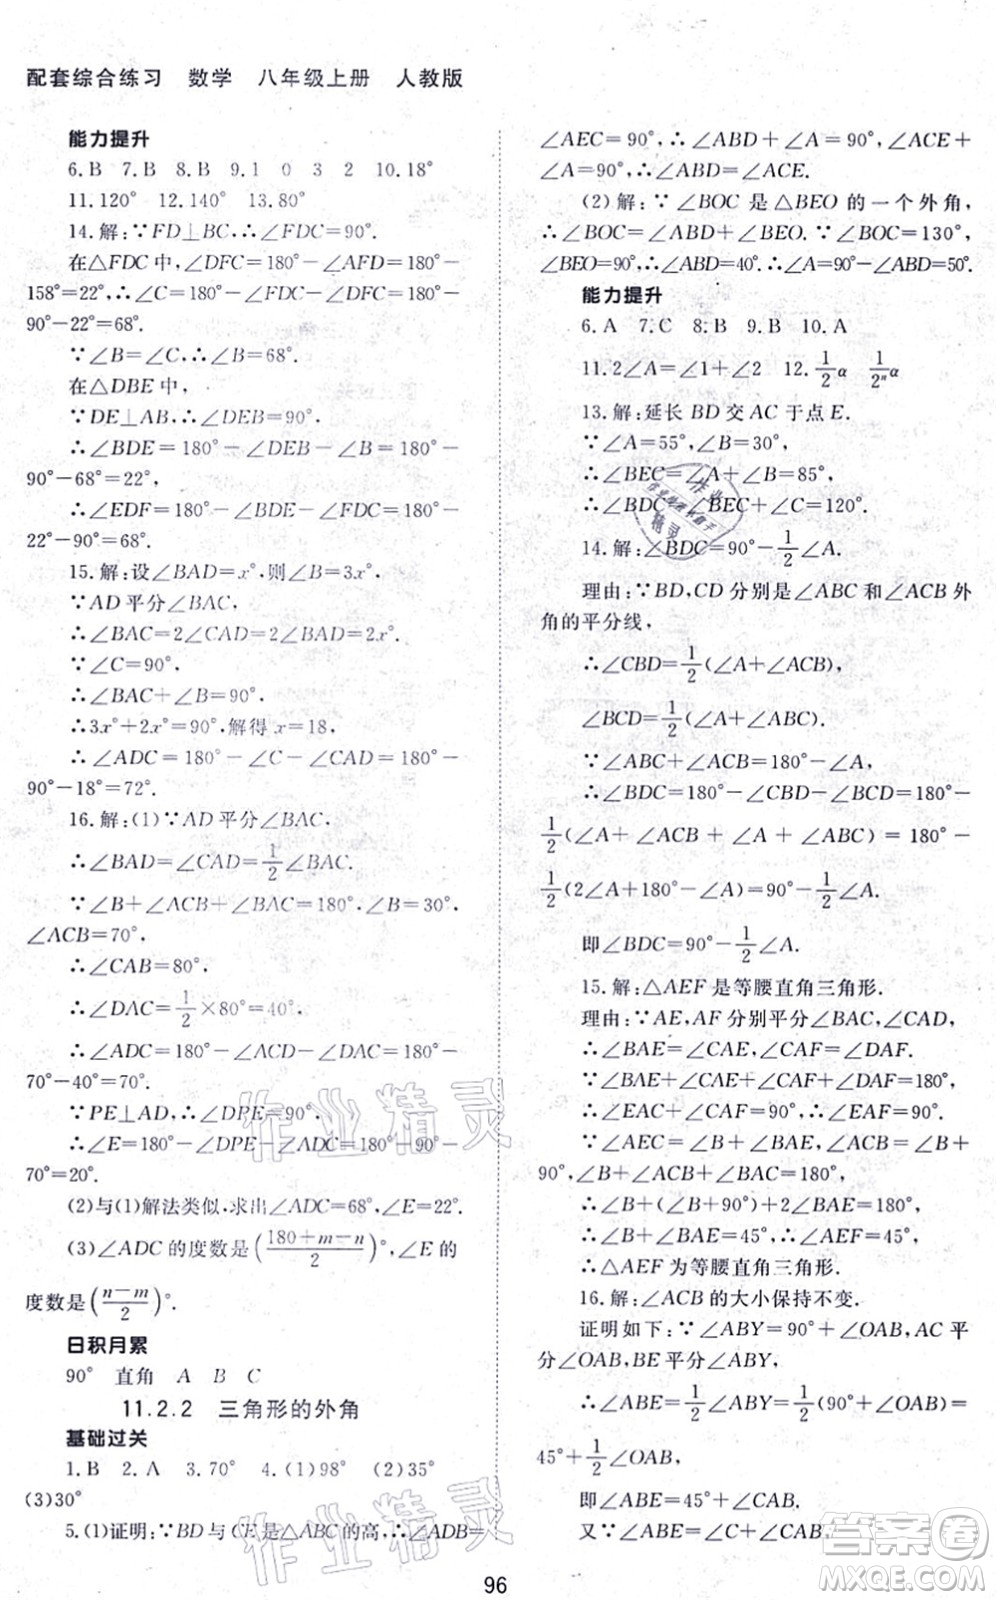 配套综合练习 数学 八年级上册 人教版
能力提升
6.B 7.B 8.B 9.1 0 3 2 10.18°
11.120° 12.140° 13.80°
14.解:∵FD⊥BC,∴∠FDC=90°.
在△FDC中,∠DFC=180°-∠AFD=180°-
158°=22°,∴∠C=180°-∠FDC-∠DFC=180°-
90°-22°=68°.
∵∠B=∠C,∴∠B=68°.
在△DBE中,
∵DE⊥AB,∴∠DEB=90°.
∴∠BDE=180°-∠DEB-∠B=180°-
90°-68°=22°,
∴∠EDF=180°-∠BDE-∠FDC=180°-
22°-90°=68°.
15.解:设∠BAD=x°,则∠B=3x°,
∵AD平分∠BAC,
∴∠BAC=2∠CAD=2∠BAD=2x°.
∵∠C=90°,
∴∠BAC+∠B=90°,
∴3x°+2x°=90°,解得x=18,
∴∠ADC=180°-∠C-∠CAD=180°-
90°-18°=72°.
16.解:(1)∵AD平分∠BAC,
∴∠BAD=∠CAD=1/2∠BAC.
∵∠B+∠ACB+∠CAB=180°,∠B=30°,
∠ACB=70°,
∴∠CAB=80°,
∴∠DAC=1/2×80°=40°,
∴∠ADC=180°-∠ACB-∠DAC=180°-
70°-40°=70°.
∵PE⊥AD,∴∠DPE=90°,
∴∠E=180°-∠DPE-∠ADC=180°-90°-
70°=20°.
(2)与(1)解法类似,求出∠ADC=68°,∠E=22°.
(3)∠ADC的度数是((180+m-n)/2)°,∠E的
度数是((n-m)/2)°.
日积月累
90° 直角 A B C
11.2.2 三角形的外角
基础过关
1.B 2.A 3.70° 4.(1)98° (2)35°
(3)30°
5.(1)证明:∵BD与CE是△ABC的高,∴∠ADB=
∠AEC=90°,∴∠ABD+∠A=90°,∠ACE+
∠A=90°,∴∠ABD=∠ACE.
(2)解:∵∠BOC是△BEO的一个外角,
∴∠BOC=∠ABD+∠BEO.∵∠BOC=130°,
∠BEO=90°,∴∠ABD=40°.∴∠A=90°-∠ABD=50°.
能力提升
6.A 7.C 8.B 9.B 10.A
11.2∠A=∠1+∠2 12.1/2α 1/2ⁿα
13.解:延长BD交AC于点E.
∵∠A=55°,∠B=30°,
∴∠BEC=∠A+∠B=85°,
∴∠BDC=∠BEC+∠C=120°.
14.解:∠BDC=90°-1/2∠A.
理由:∵BD,CD分别是∠ABC和∠ACB外
角的平分线,
∴∠CBD=1/2(∠A+∠ACB),
∠BCD=1/2(∠A+∠ABC).
∵∠ABC+∠ACB=180°-∠A,
∴∠BDC=180°-∠CBD-∠BCD=180°-
1/2(∠A+∠ACB+∠A+∠ABC)=180°-
1/2(2∠A+180°-∠A)=90°-1/2∠A,
即∠BDC=90°-1/2∠A.
15.解:△AEF是等腰直角三角形.
理由:∵AE,AF分别平分∠BAC,∠CAD,
∴∠BAE=∠EAC,∠CAF=∠DAF.
∵∠BAE+∠EAC+∠CAF+∠DAF=180°,
∴∠EAC+∠CAF=∠EAF=90°.
∵∠EAF+∠B+∠BAE+∠DAF=180°,∠ACB=
90°,∠B+∠ACB+∠BAC=180°,
∴∠B+∠B+90°+2∠BAE=180°,
∴∠B+∠BAE=45°,∴∠AEF=45°,
∴△AEF为等腰直角三角形.
16.解:∠ACB的大小保持不变.
证明如下:∵∠ABY=90°+∠OAB,AC平
分∠OAB,BE平分∠ABY,
∴∠ABE=1/2∠ABY=1/2(90°+∠OAB)=
45°+1/2∠OAB,
即∠ABE=45°+∠CAB.
又∵∠ABE=∠C+∠CAB,
96
作业精灵
作业精灵
答案卷
MXQE.COM